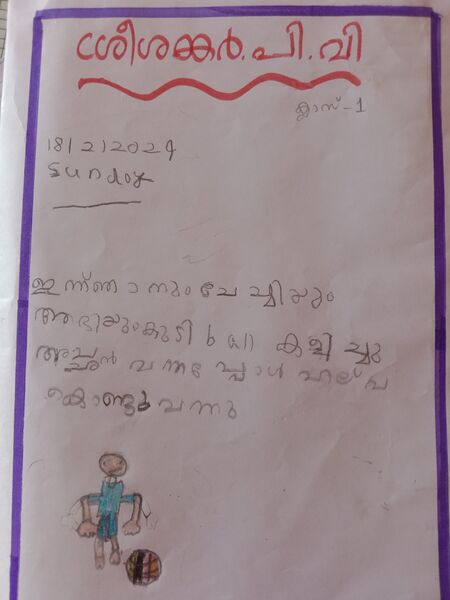 ശ്രീശങ്കർ.പി.വി
ക്ലാസ്-1
18/2/2024
Sunday
ഇന്ന് ഞാനും ചേച്ചിയും
ആദിയുംകുടി ball കളിച്ചു
അച്ഛൻ വന്നപ്പോൾ ഹല്വ
കൊണ്ടുവന്നു